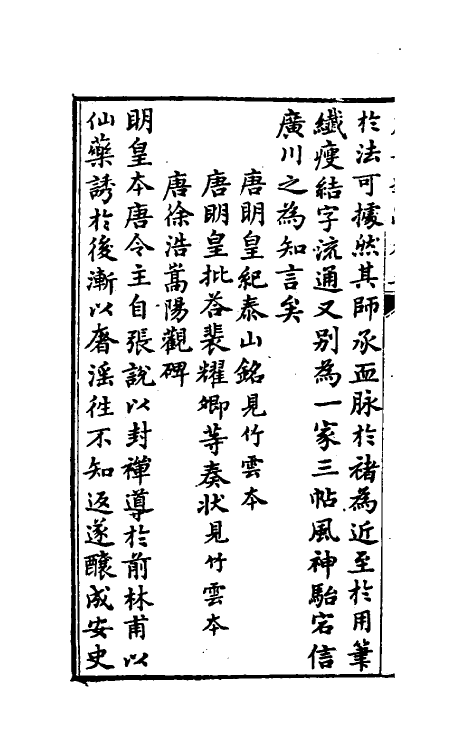 於法可據然其師承血脉於褚為近至於用筆
纖瘦結字流通又别為一家三帖風神駘宕信
廣川之為知言矣
唐明皇紀泰山銘見竹雲本
唐明皇批答裴耀卿等奏狀見竹雲本
唐徐浩嵩陽觀碑
明皇本唐令主自張說以封禪導於前林甫以
仙藥誘於後漸以奢淫往不知返遂釀成安史